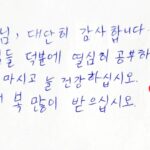 님, 대단히 감사합니다.
들 덕분에 열심히 공부하
마시고 늘 건강하십시오.
복 많이 받으십시오.